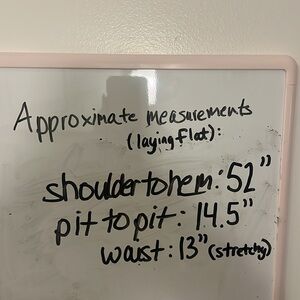 Approximate measurements
(laying flat):
shoulder to hem: 52"
pit to pit: 14.5"
waist: 13" (stretchy)